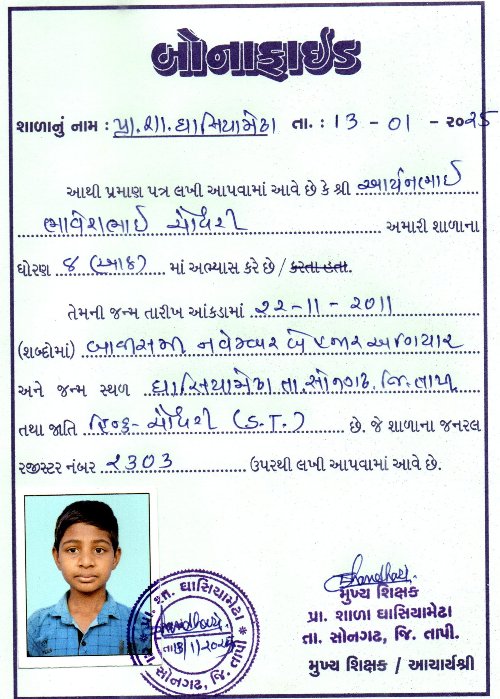 બોનાફાઈડ
શાળાનું નામ : પ્રા.શા.ઘાસિયામેઢા તા. : 13 - 01 - ૨૦25
આથી પ્રમાણ પત્ર લખી આપવામાં આવે છે કે શ્રી આર્યનભાઈ
ભાવેશભાઈ ચૌધરી અમારી શાળાના
ધોરણ ૮ (આઠ) માં અભ્યાસ કરે છે / કરતા હતા.
તેમની જન્મ તારીખ આંકડામાં ૨૨-11-2011
(શબ્દોમાં) બાવીસમી નવેમ્બર બે હજાર અગિયાર
અને જન્મ સ્થળ ઘાસિયામેઢા તા.સોનગઢ, જિ.તાપી
તથા જાતિ હિન્દુ-ચૌધરી (S.T.) છે. જે શાળાના જનરલ
રજીસ્ટર નંબર ૨૩૦૩ ઉપરથી લખી આપવામાં આવે છે.
મુખ્ય શિક્ષક
પ્રા. શાળા ઘાસિયામેઢા
તા. સોનગઢ, જિ. તાપી.
મુખ્ય શિક્ષક / આચાર્યશ્રી
પ્રા. શા. ઘાસિયામેઢા
તા 13/1/2025
તા. સોનગઢ, જિ. તાપી